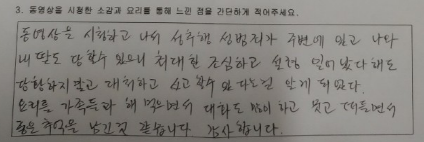 3. 동영상을 시청한 소감과 요리를 통해 느낀 점을 간단하게 적어주세요.
동영상을 시청하고 나서 성추행 성범죄가 주변에 있고 나와
내 딸도 당할수 있으니 최대한 조심하고 설령 일어났다해도
당황하지말고 대처하고 신고할수 있다는걸 알게 되었다.
요리를 가족들과 해 먹으면서 대화도 많이 하고 웃고 떠들면서
좋은 추억을 남긴것 같습니다. 감사합니다.